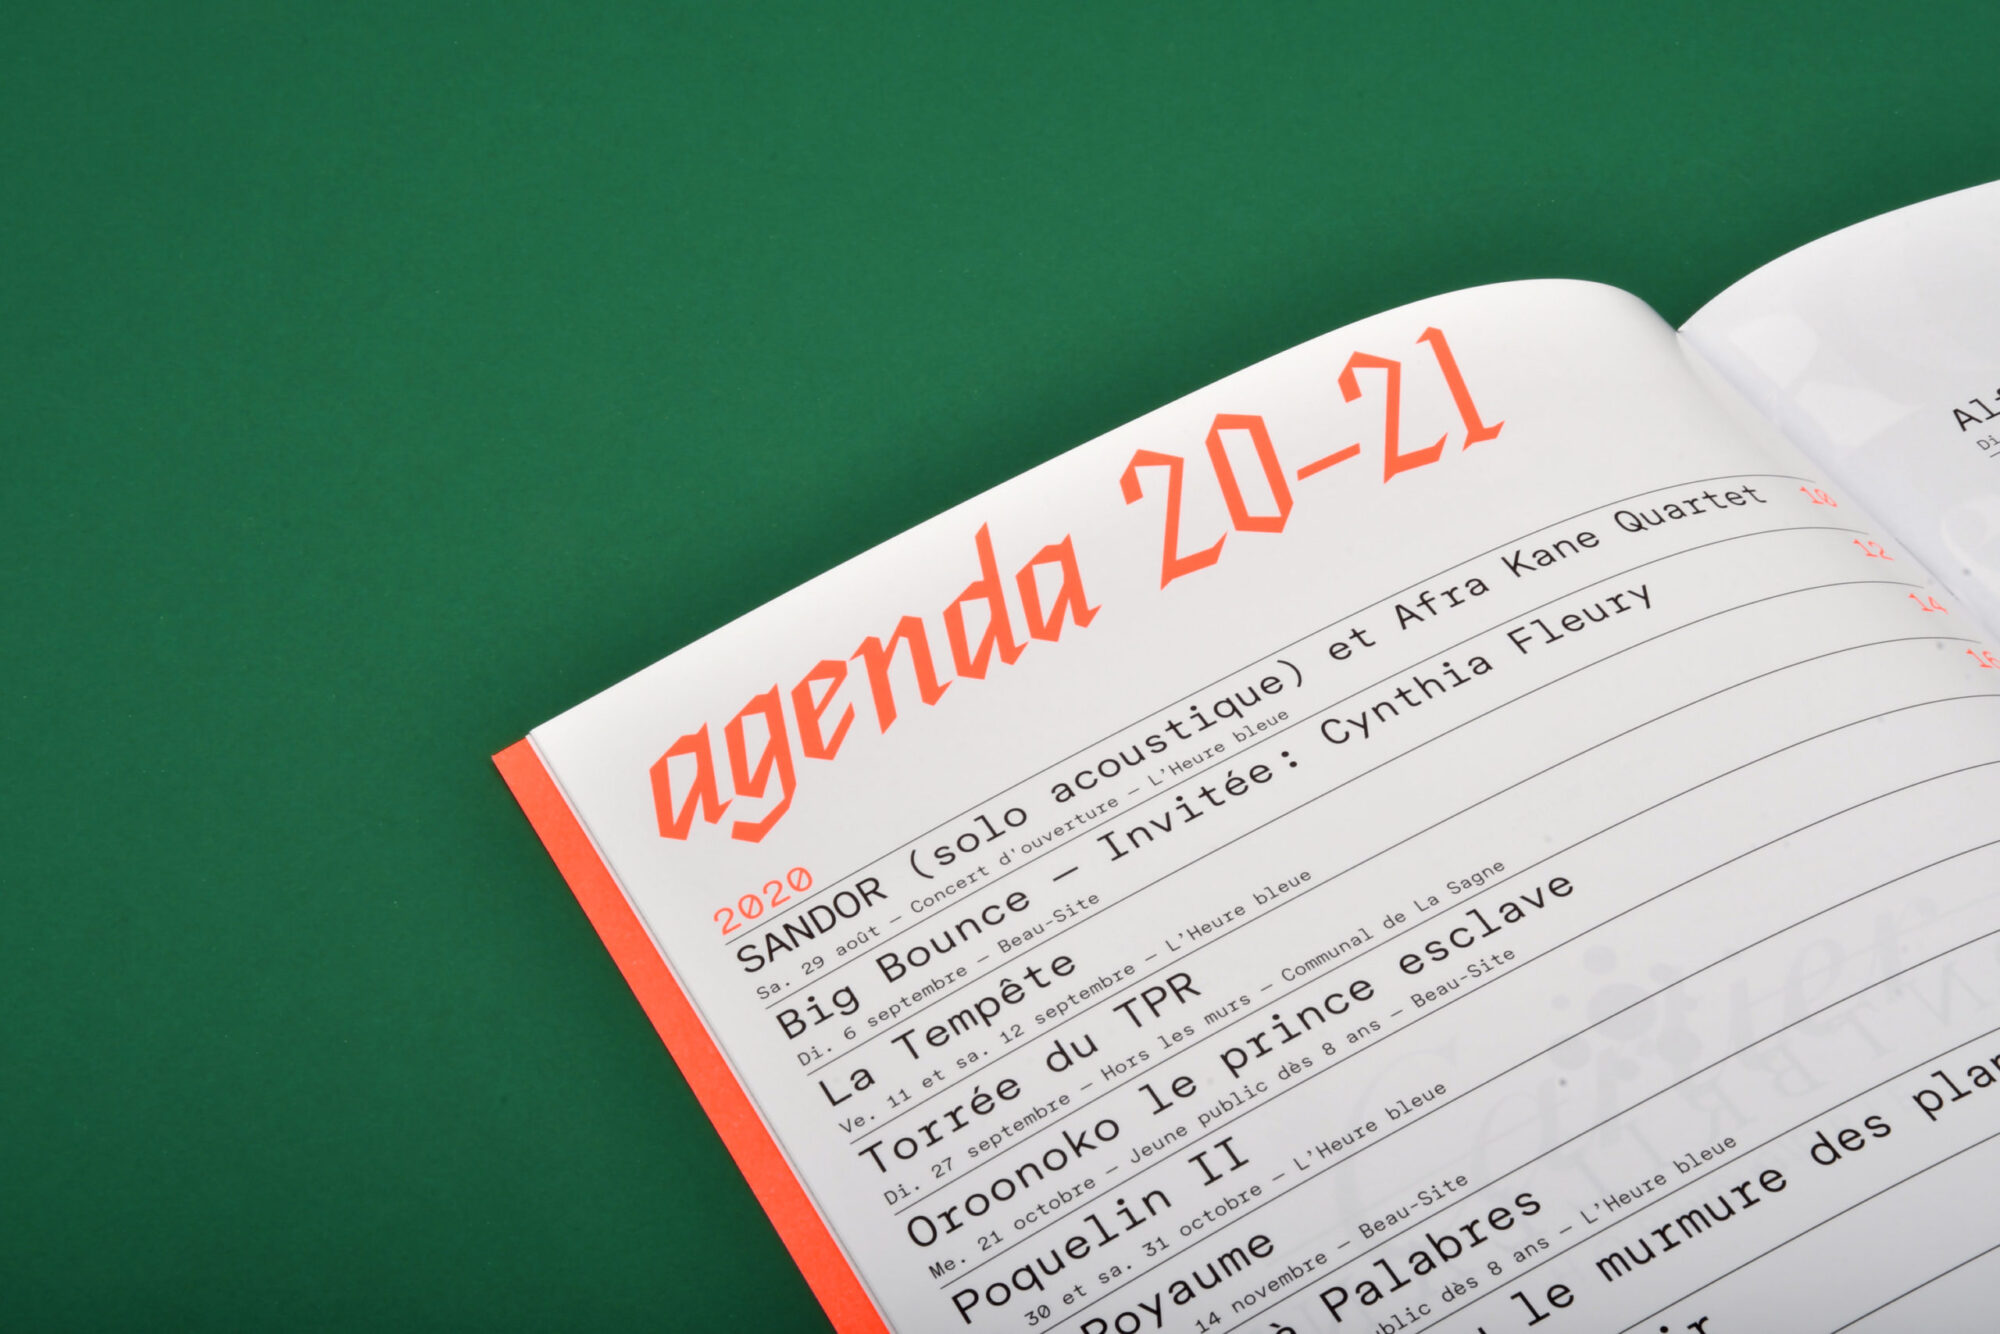 agenda 20–21
2020
SANDOR (solo acoustique) et Afra Kane Quartet 10
Sa. 29 août – Concert d'ouverture – L'Heure bleue
Big Bounce – Invitée: Cynthia Fleury 12
Di. 6 septembre – Beau-Site
La Tempête 14
Ve. 11 et sa. 12 septembre – L'Heure bleue
Torrée du TPR 16
Di. 27 septembre – Hors les murs – Communal de La Sagne
Oroonoko le prince esclave
Me. 21 octobre – Jeune public dès 8 ans – Beau-Site
Poquelin II
30 et sa. 31 octobre – L'Heure bleue
Royaume
14 novembre – Beau-Site
à Palabres
public dès 8 ans – L'Heure bleue
le murmure des